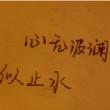 心无波澜
似止水